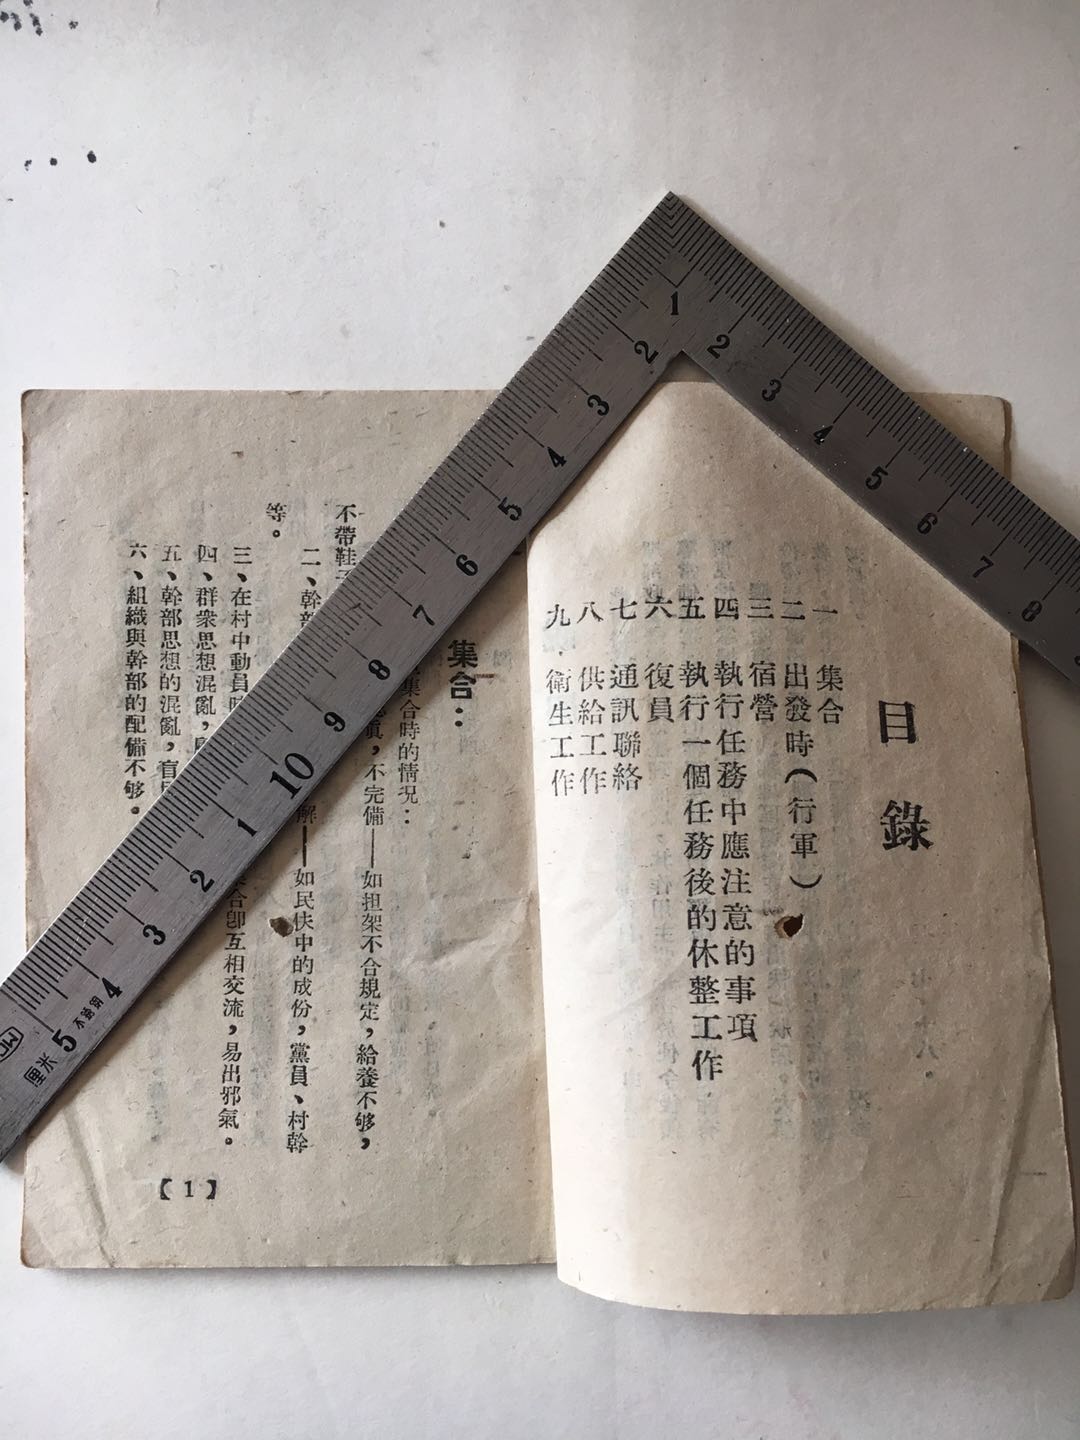 目錄
一 集合
二 出發時(行軍)
三 宿營
四 執行任務中應注意的事項
五 執行一個任務後的休整工作
六 復員
七 通訊聯絡
八 供給工作
九 衛生工作
集合:
集合時的情況:
,不完備——如担架不合規定,給養不够,
不帶鞋
二、幹部
解——如民伕中的成份,黨員、村幹
等。
三、在村中動員時
合卽互相交流,易出邪氣。
四、群衆思想混亂,
五、幹部思想的混亂,盲
六、組織與幹部的配備不够。
【1】
1 2 3 4 5 6 7 8 9 10 1 2 3 4 5
2 3 4 5 6 7 8
不銹鋼
厘米